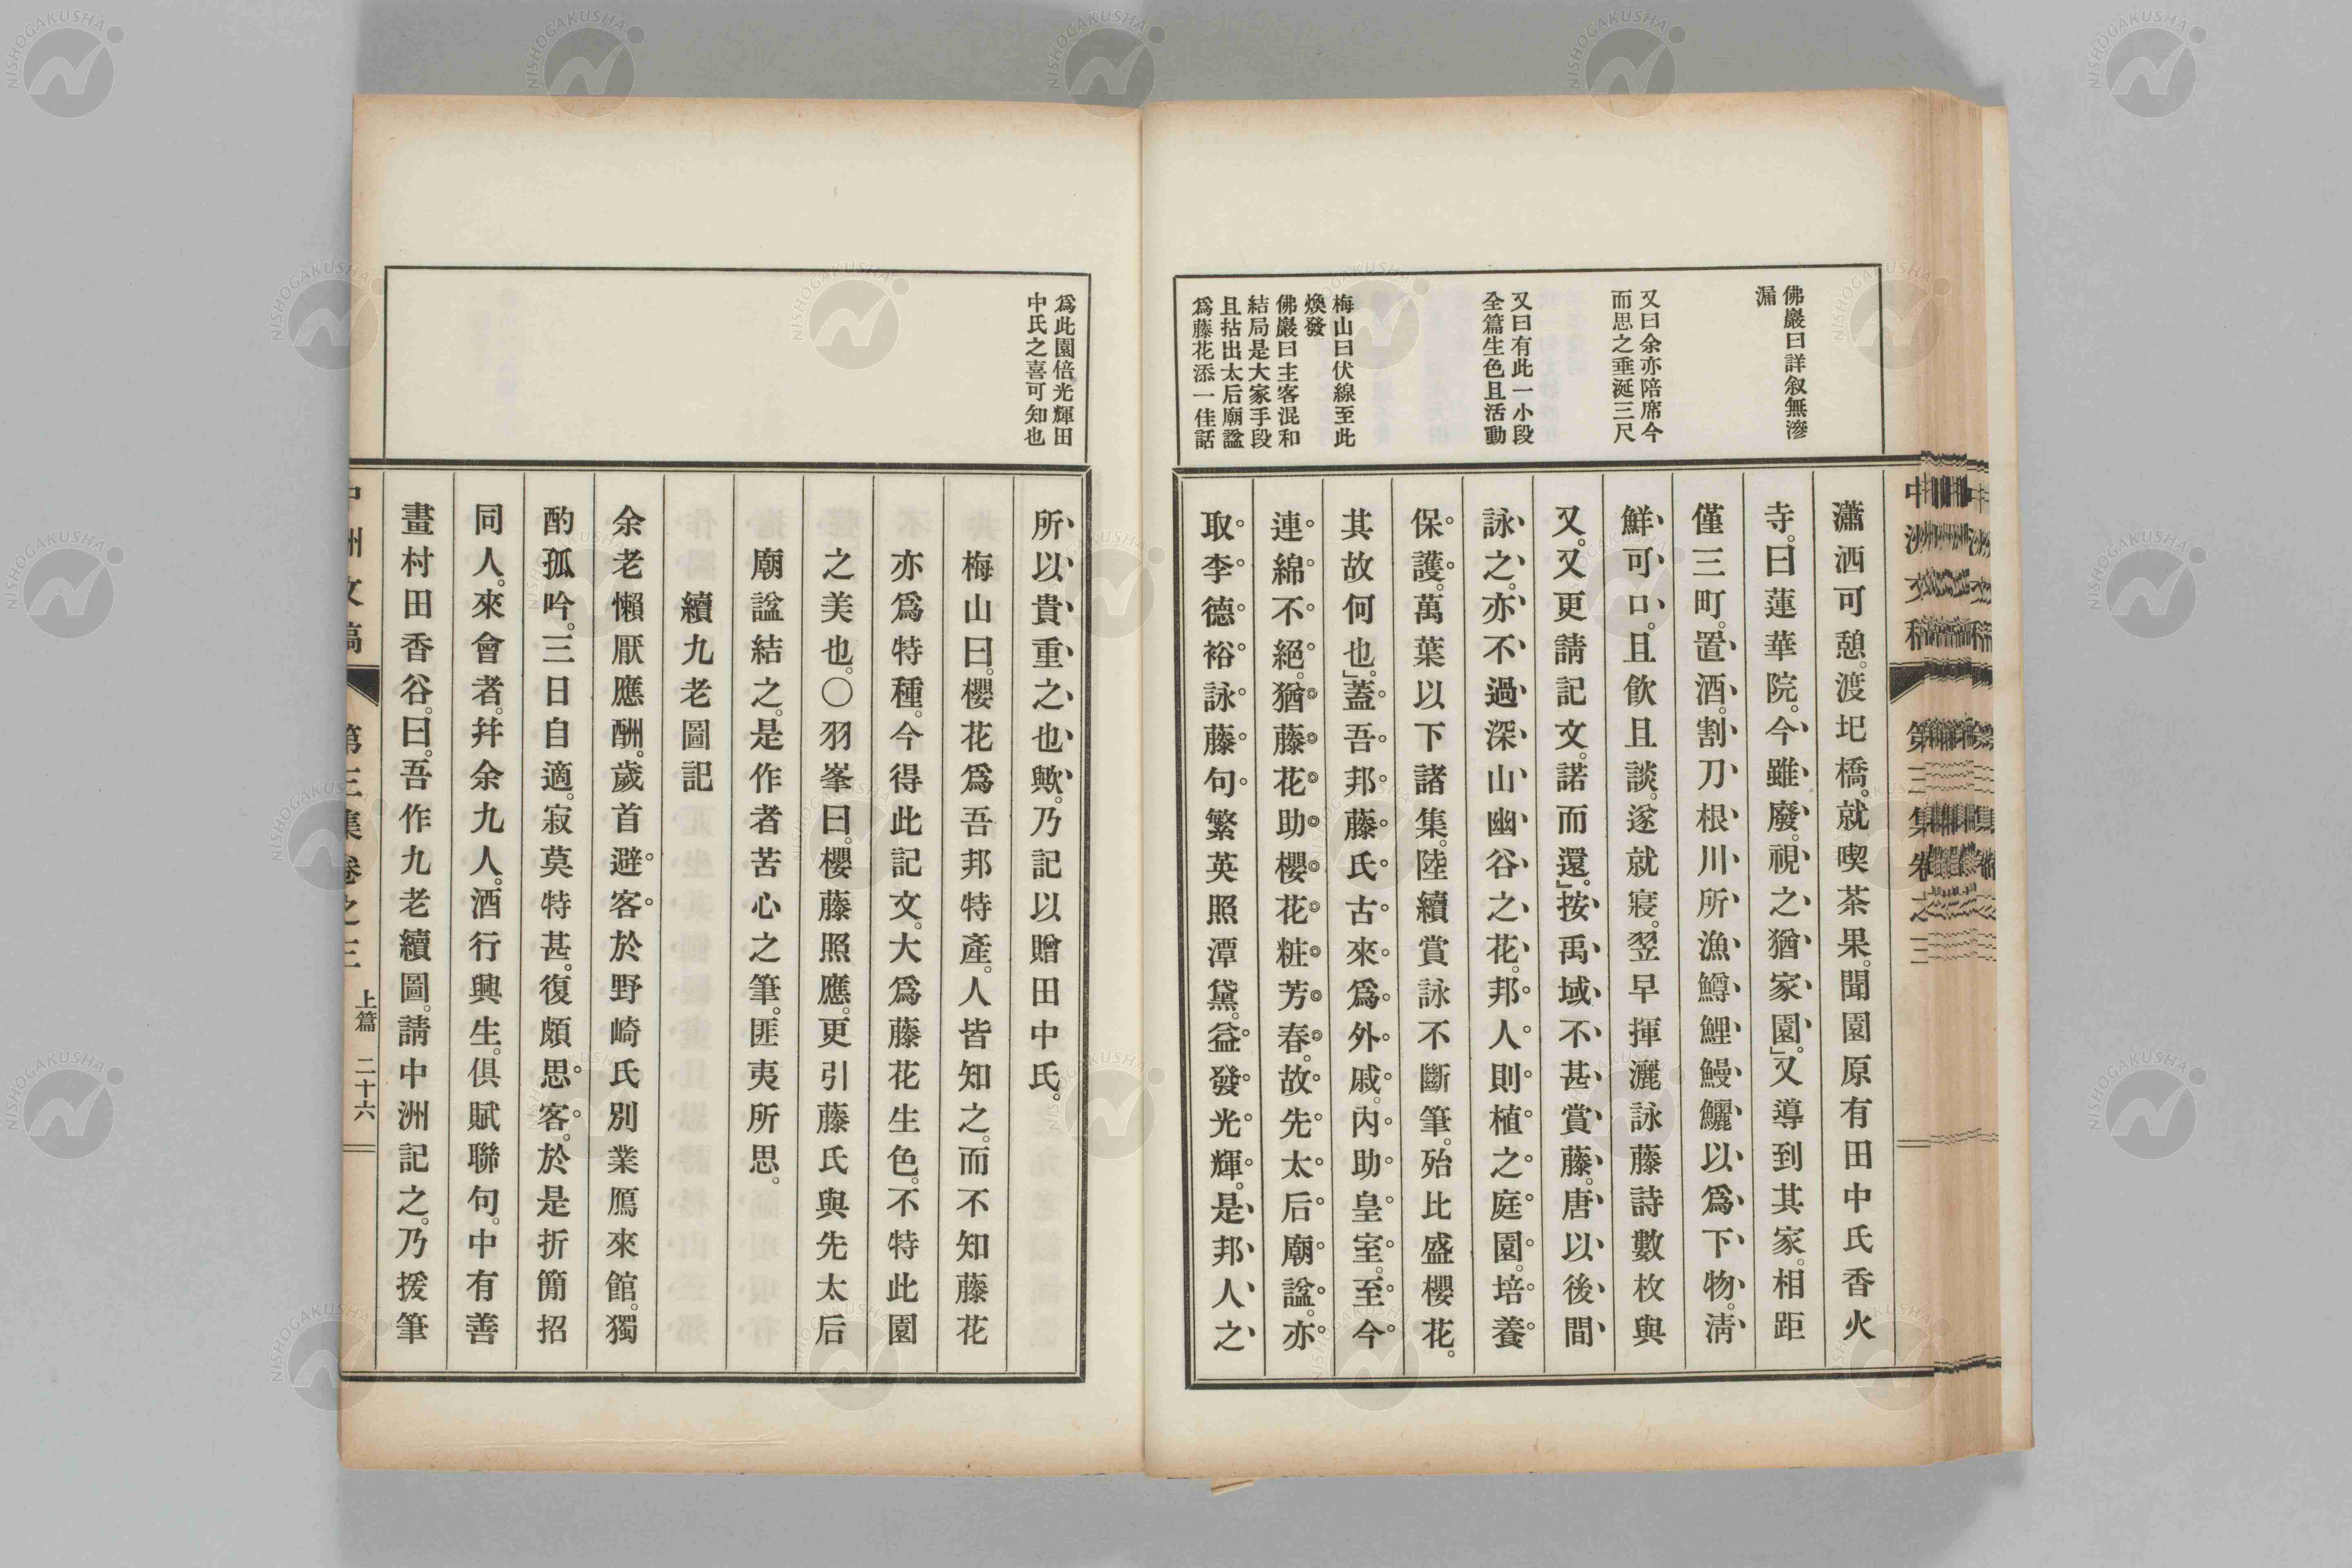 佛巖曰詳叙無滲
漏
又曰余亦陪席今
而思之垂涎三尺
又曰有此一小段
全篇生色且活動
梅山曰伏線至此
煥發
佛巖曰主客混和
結局是大家手段
且拈出太后廟諡
爲藤花添一佳話
瀟洒可憩。渡圯橋。就喫茶果。聞園原有田中氏香火
寺。曰蓮華院。今雖廢。視之猶家園。」又導到其家。相距
僅三町。置酒。割刀根川所漁鱒鯉鰻鱺以爲下物。淸
鮮可口。且飮且談。遂就寢。翌早揮灑詠藤詩數枚與
又。又更請記文。諾而還。」按禹域不甚賞藤。唐以後間
詠之。亦不過深山幽谷之花。邦人則植之庭園。培養
保護。萬葉以下諸集。陸續賞詠不斷筆。殆比盛櫻花。
其故何也。」蓋吾邦藤氏古來爲外戚。內助皇室。至今
連綿不絕。猶藤花助櫻花粧芳春。故先太后廟諡。亦
取李德裕詠藤句。繁英照潭黛。益發光輝。是邦人之
爲此園倍光輝田
中氏之喜可知也
所以貴重之也歟。乃記以贈田中氏。
梅山曰。櫻花爲吾邦特產。人皆知之。而不知藤花
亦爲特種。今得此記文。大爲藤花生色。不特此園
之美也。〇羽峯曰。櫻藤照應。更引藤氏與先太后
廟諡結之。是作者苦心之筆。匪夷所思。
續九老圖記
余老懶厭應酬。歲首避客於野崎氏別業鴈來館。獨
酌孤吟。三日自適。寂莫特甚。復頗思客。於是折簡招
同人。來會者。幷余九人。酒行興生。俱賦聯句。中有善
畫村田香谷。曰。吾作九老續圖。請中洲記之。乃援筆
中洲文稿
第三集卷之三
上篇
二十六